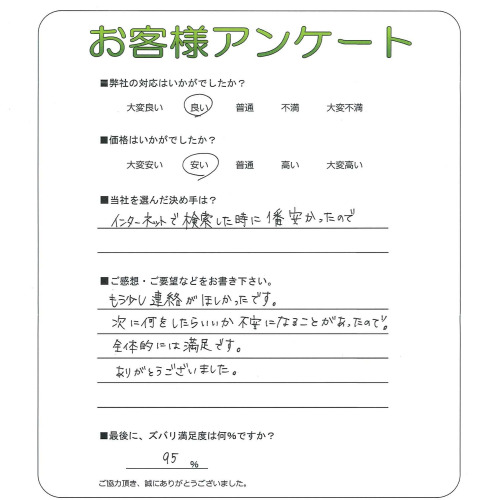 お客様アンケート
■弊社の対応はいかがでしたか？
大変良い 良い 普通 不満 大変不満
■価格はいかがでしたか？
大変安い 安い 普通 高い 大変高い
■当社を選んだ決め手は？
インターネットで検索した時に1番安かったので
■ご感想・ご要望などをお書き下さい。
もう少し連絡がほしかったです。
次に何をしたらいいか不安になることがあったので。
全体的には満足です。
ありがとうございました。
■最後に、ズバリ満足度は何％ですか？
95 ％
ご協力頂き、誠にありがとうございました。